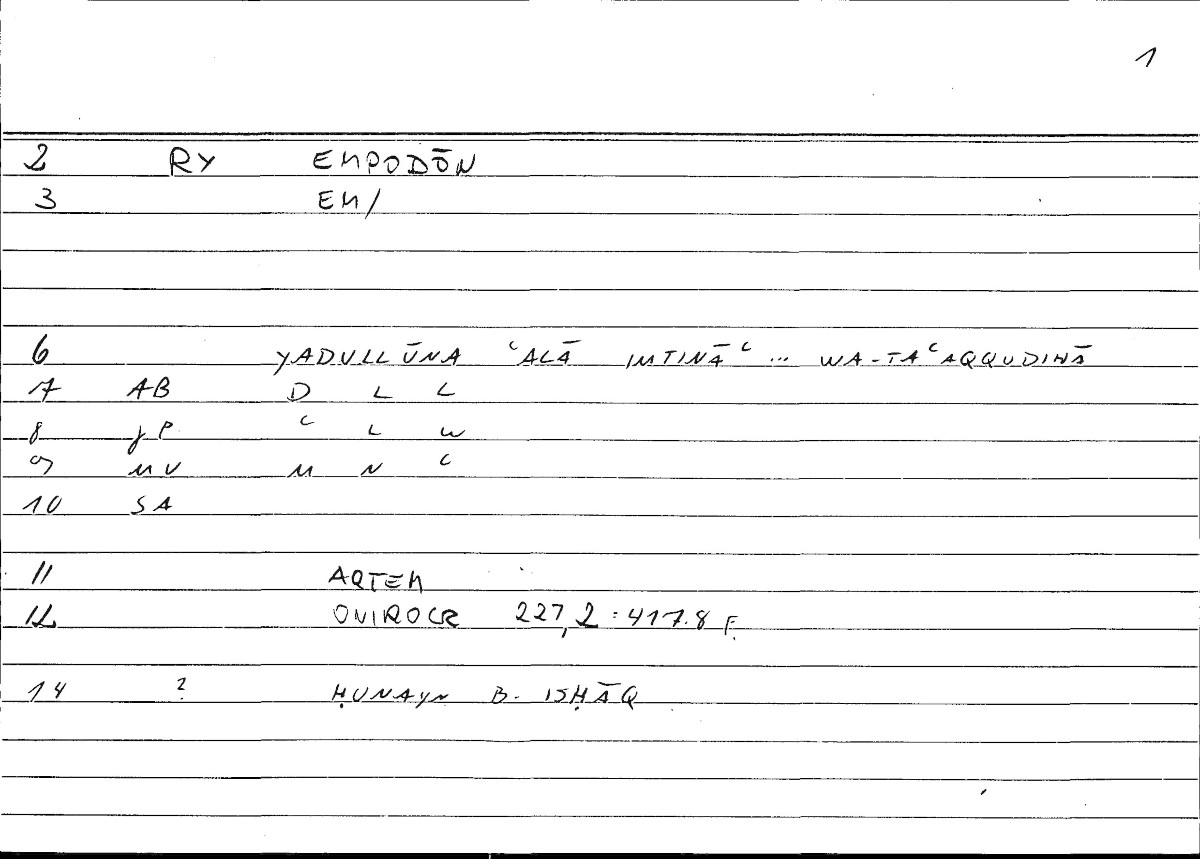 1
2 RY EMPODŌN
3 EM/
6 YADULLŪNA ʿALĀ IMTINĀʿ ... WA-TAʿAQQUDIHĀ
7 AB D L L
8 JP ʿ L W
9 MV M N ʿ
10 SA
11 ARTEM
12 ONIROCR 227,2 : 417.8 F.
14 ? ḤUNAYN B. ISḤĀQ